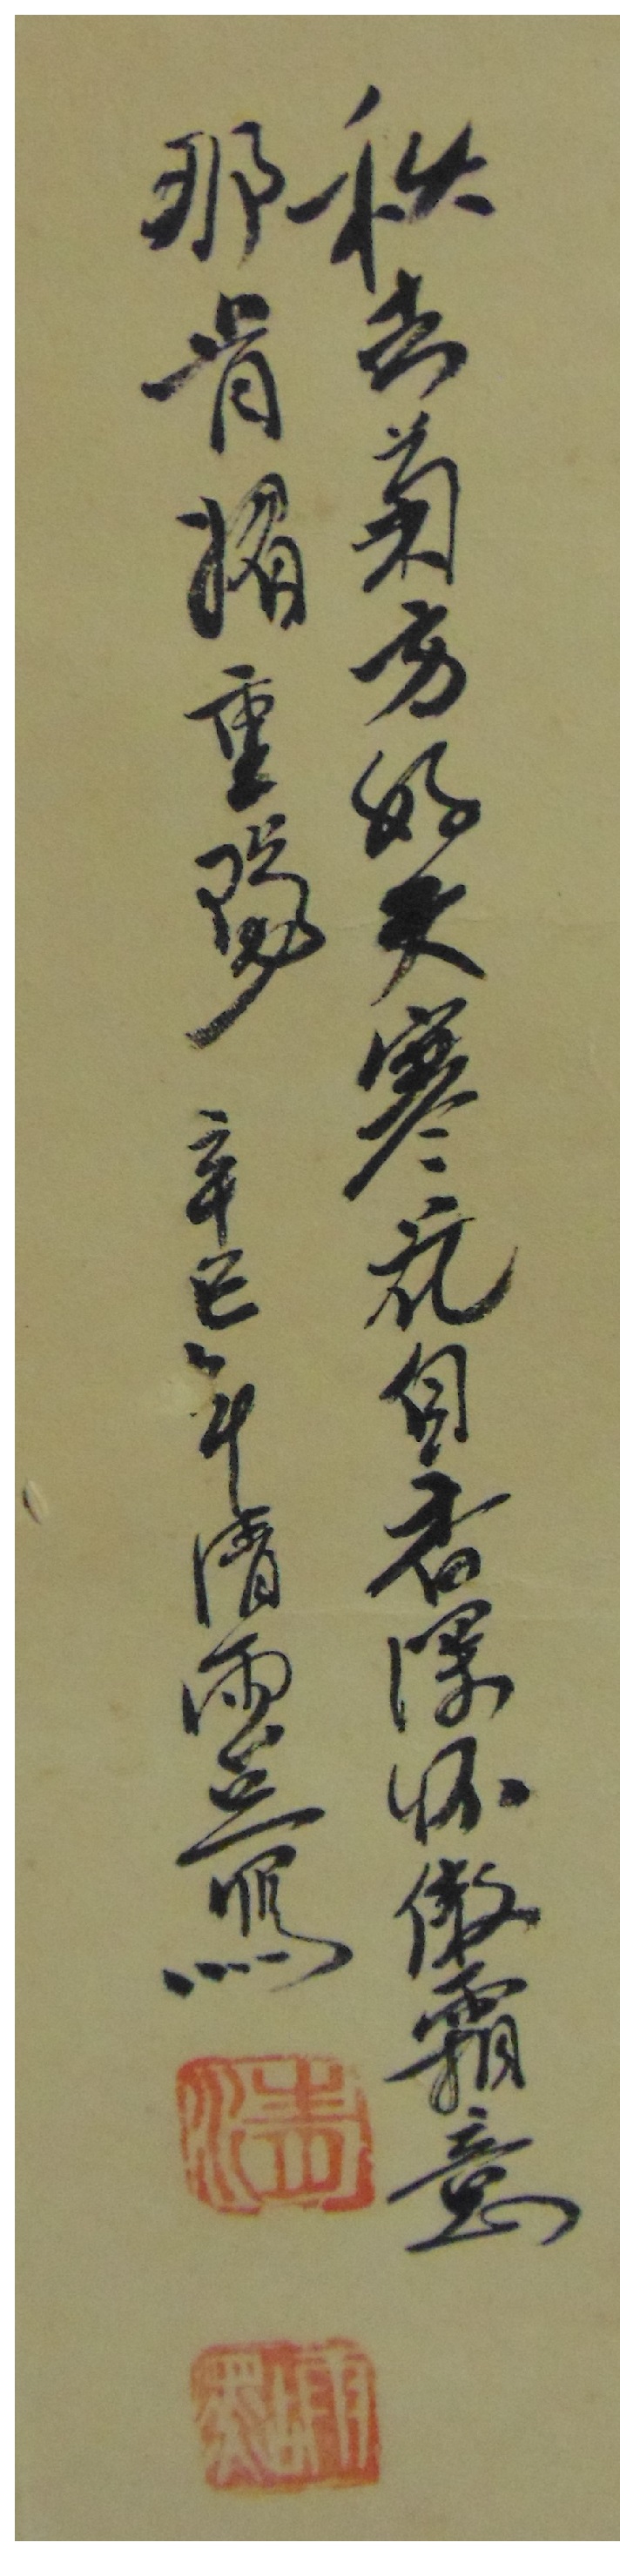 秋去菊方好天寒花自香深怀傲霜意
那肯媚重陽 辛巳年清雨
清